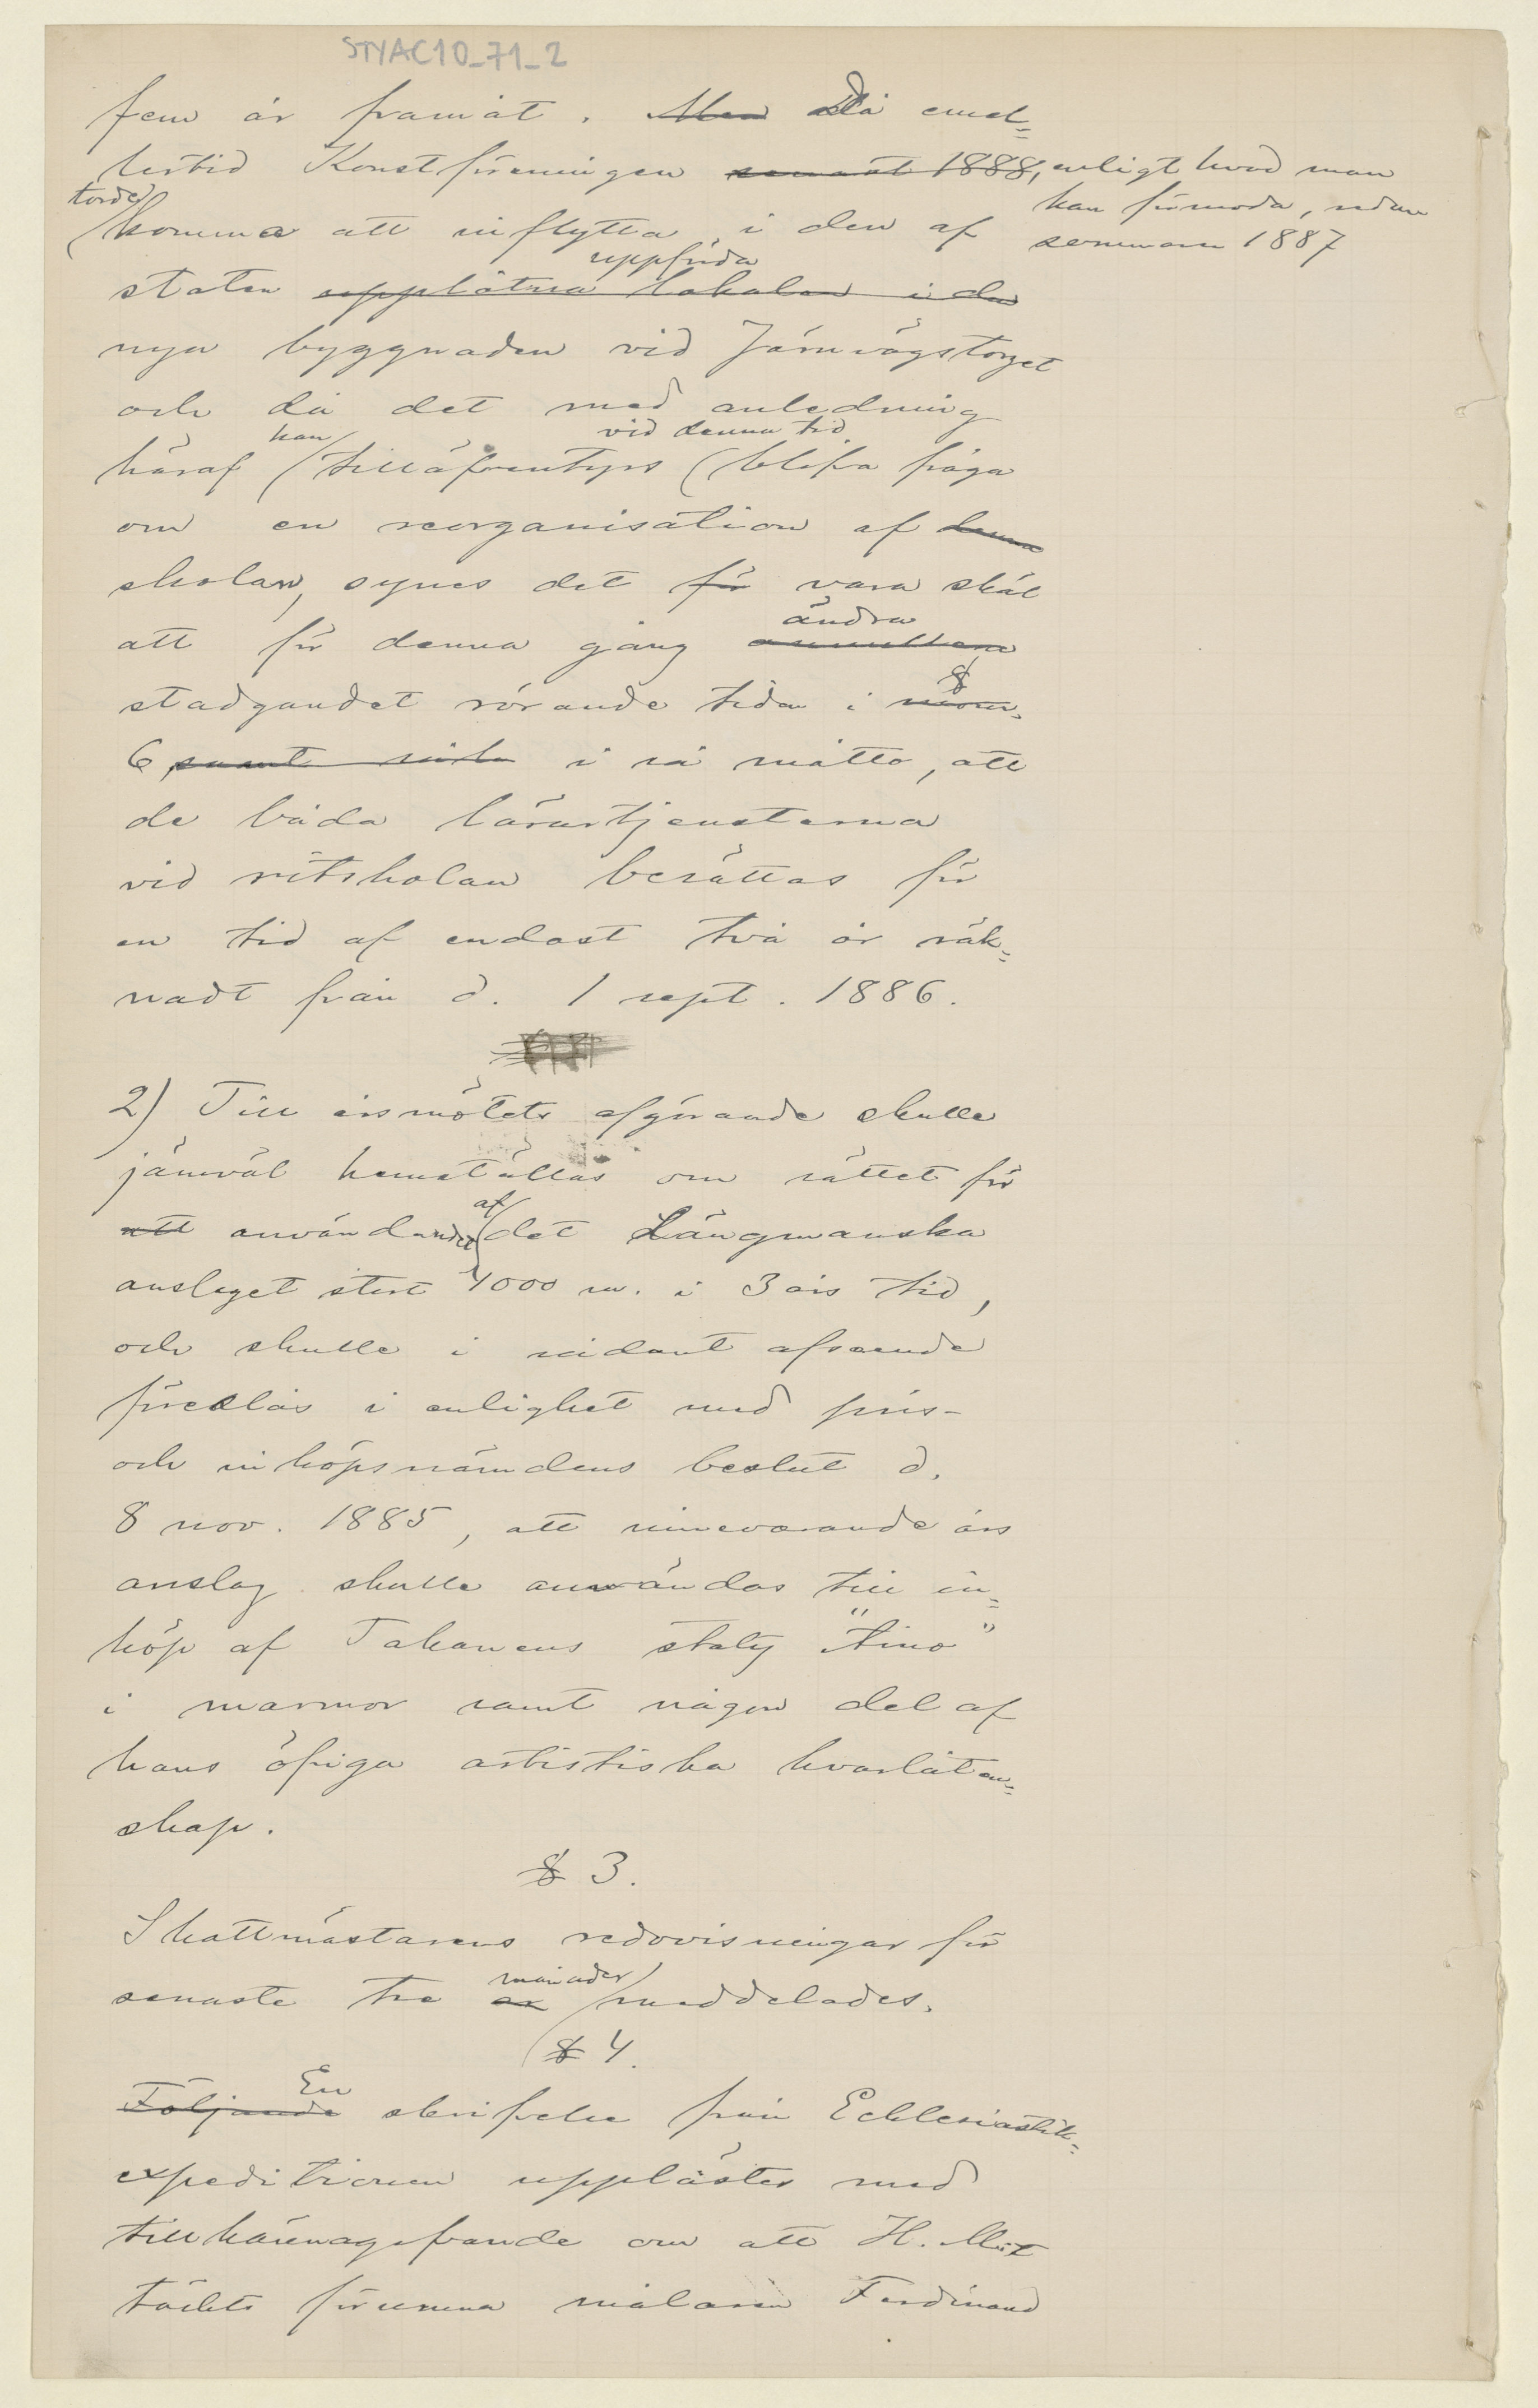 STYAC10_71_2
fem år framåt. Men Då emel=
lertid Konstföreningen senast 1888, enligt hvad man
kan förmoda, redan
torde
komma att inflytta i den af sommaren 1887
uppförda
staten upplåtna lokalen i den
nya byggnaden vid Järnvägstorget
och då det med anledning
kan vid denna tid
häraf tilläfventyrs blifva fråga
om en reorganisation af denna
skolan, synes det för vara skäl
ändra
att för denna gång annullera
§
stadgandet rörande tiden i mom.
6 samt i så måtto, att
de båda lärartjensterna
vid ritskolan besättas för
en tid af endast två år räk=
nadt från d. 1 sept. 1886.
2) Till årsmötets afgörande skulle
jämväl hemställas om sättet för
af
att användandet det Längmanska
anslaget stort 4000 m. i 3 års tid,
och skulle i sådant afseende
föreslås i enlighet med pris-
och inköpsnämdens beslut d.
8 nov. 1885, att innevarande års
anslag skulle användas till in=
köp af Takanens staty "Aino"
i marmor samt någon del af
hans öfriga artistiska kvarlåten=
skap.
§ 3.
Skattmästarens redovisningar för
månader
senaste tre år meddelades.
§ 4.
En
Följande skrifvelse från Ecklesiastik=
expeditionen upplästes med
tillkännagifvande om att H. M:t
täckts förunna målaren Ferdinand